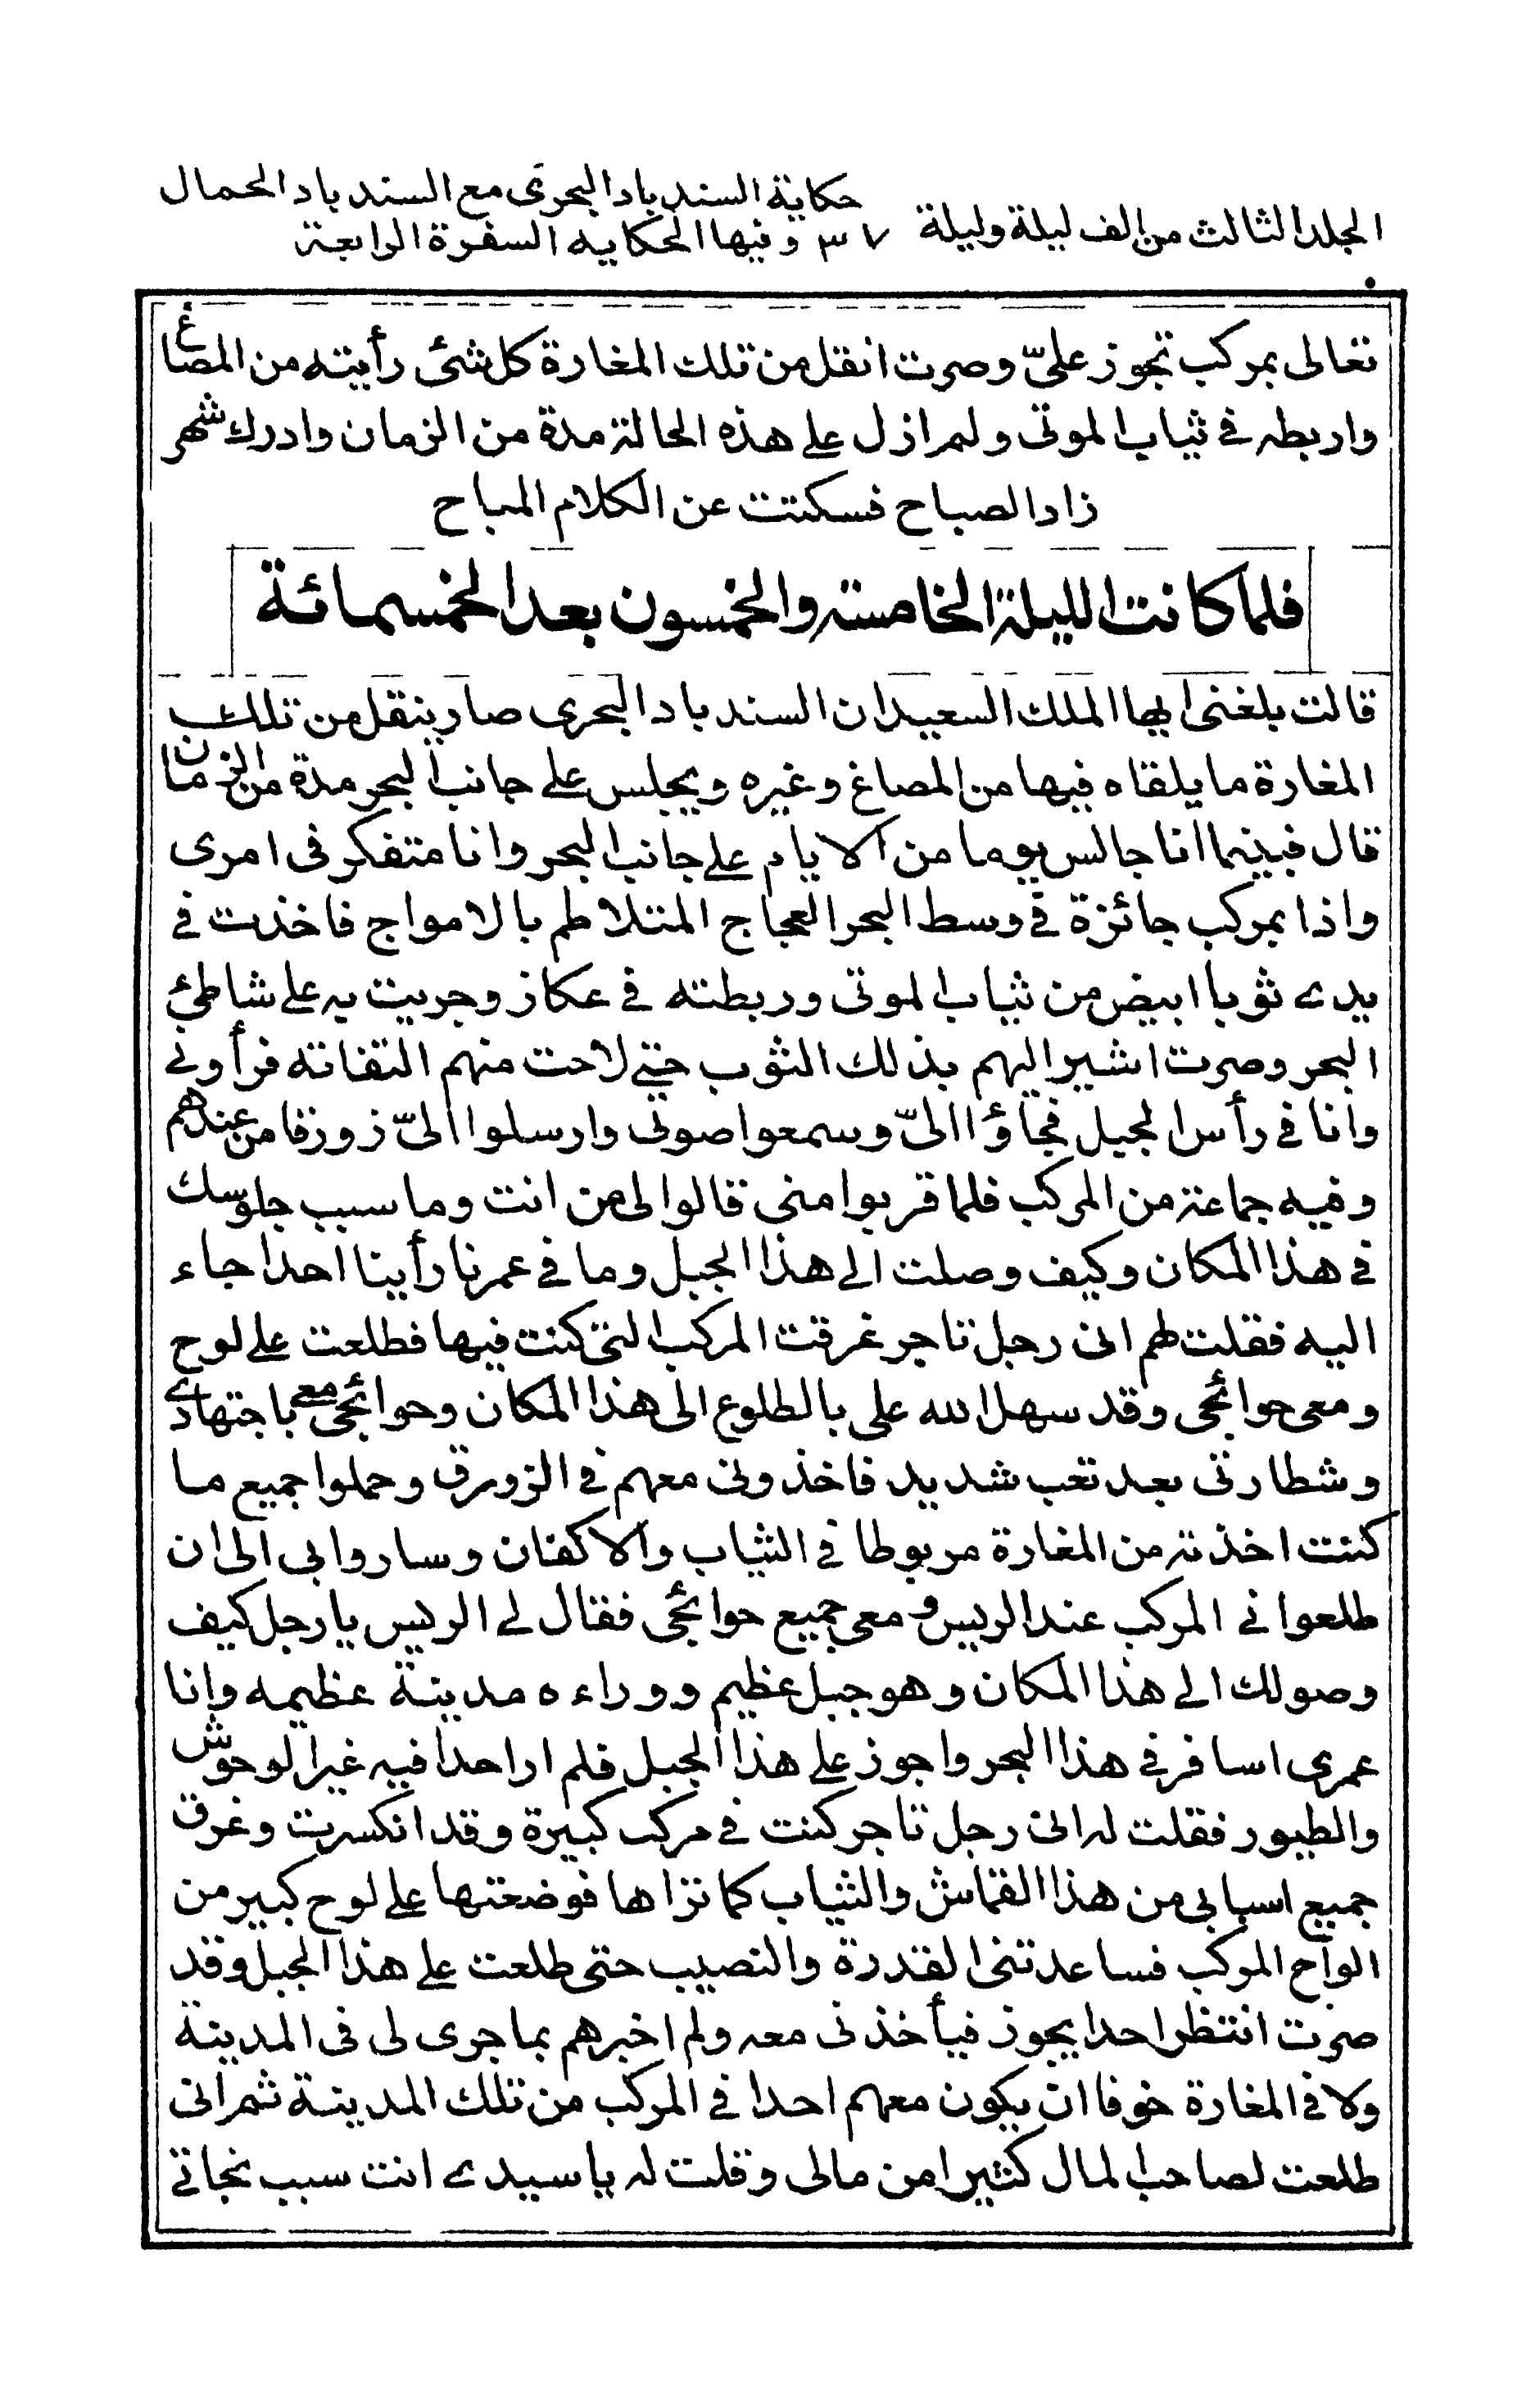 حكاية السندباد البحرى مع السندباد الحمال
المجلد الثالث من الف ليلة وليلة ٣٧ وفيها الحكايه السفرة الرابعة
تعالى بمركب تجوز علىّ وصرت انقل من تلك المغارة كل شئ رأيته من المصاغ
واربطه في ثياب الموتى ولم ازل على هذه الحالة مدة من الزمان وادرك شهر
زاد الصباح فسكتت عن الكلام المباح
فلما كانت الليلة الخامسة والخمسون بعد الخمسمائة
قالت بلغنى ايها الملك السعيد ان السندباد البحرى صار ينقل من تلك
المغارة ما يلقاه فيها من المصاغ وغيره ويجلس على جانب البحر مدة من الزمان
قال فبينما انا جالس يوما من الايام على جانب البحر وانا متفكر فى امرى
واذا بمركب جائزة في وسط البحر العجاج المتلاطم بالامواج فاخذت في
يدى ثوبا ابيض من ثياب الموتى وربطته في عكاز وجريت به على شاطئ
البحر وصرت اشير اليهم بذلك الثوب حتى لاحت منهم التفاتة فرأونى
وانا في رأس الجبل فجاؤا الىّ وسمعوا صوتى وارسلوا الىّ زورقا من عندهم
وفيه جماعة من المركب فلما قربوا منى قالوا لى من انت وما سبب جلوسك
في هذا المكان وكيف وصلت الى هذا الجبل وما في عمرنا رأينا احدا جاء
اليه فقلت لهم انى رجل تاجر غرقت المركب التى كنت فيها فطلعت على لوح
ومعى حوائجى وقد سهل الله على بالطلوع الى هذا المكان وحوائجى معى باجتهادى
وشطارتى بعد تعب شديد فاخذونى معهم في الزورق وحملوا جميع ما
كنت اخذته من المغارة مربوطا في الثياب والاكفان وساروا بى الى ان
طلعوانى المركب عند الريس ومعى جميع حوائجى فقال لى الريس يا رجل كيف
وصولك الى هذا المكان وهو جبل عظيم ووراءه مدينة عظيمه وانا
عمرى اسافر في هذا البحر واجوز على هذا الجبل فلم ار احدا فيه غير الوحوش
والطيور فقلت له انى رجل تاجر كنت في مركب كبيرة وقد انكسرت وغرق
جميع اسبابى من هذا القماش والثياب كما تراها فوضعتها على لوح كبير من
الواح المركب فساعدتنى القدرة والنصيب حتى طلعت على هذا الجبل وقد
صرت انتظر احدا يجوز فيأخذنى معه ولم اخبرهم بما جرى لى فى المدينة
ولا في المغارة خوفا ان يكون معهم احدا في المركب من تلك المدينة ثم انى
طلعت لصاحب المال كثيرا من مالى وقلت له يا سيدى انت سبب نجاتى